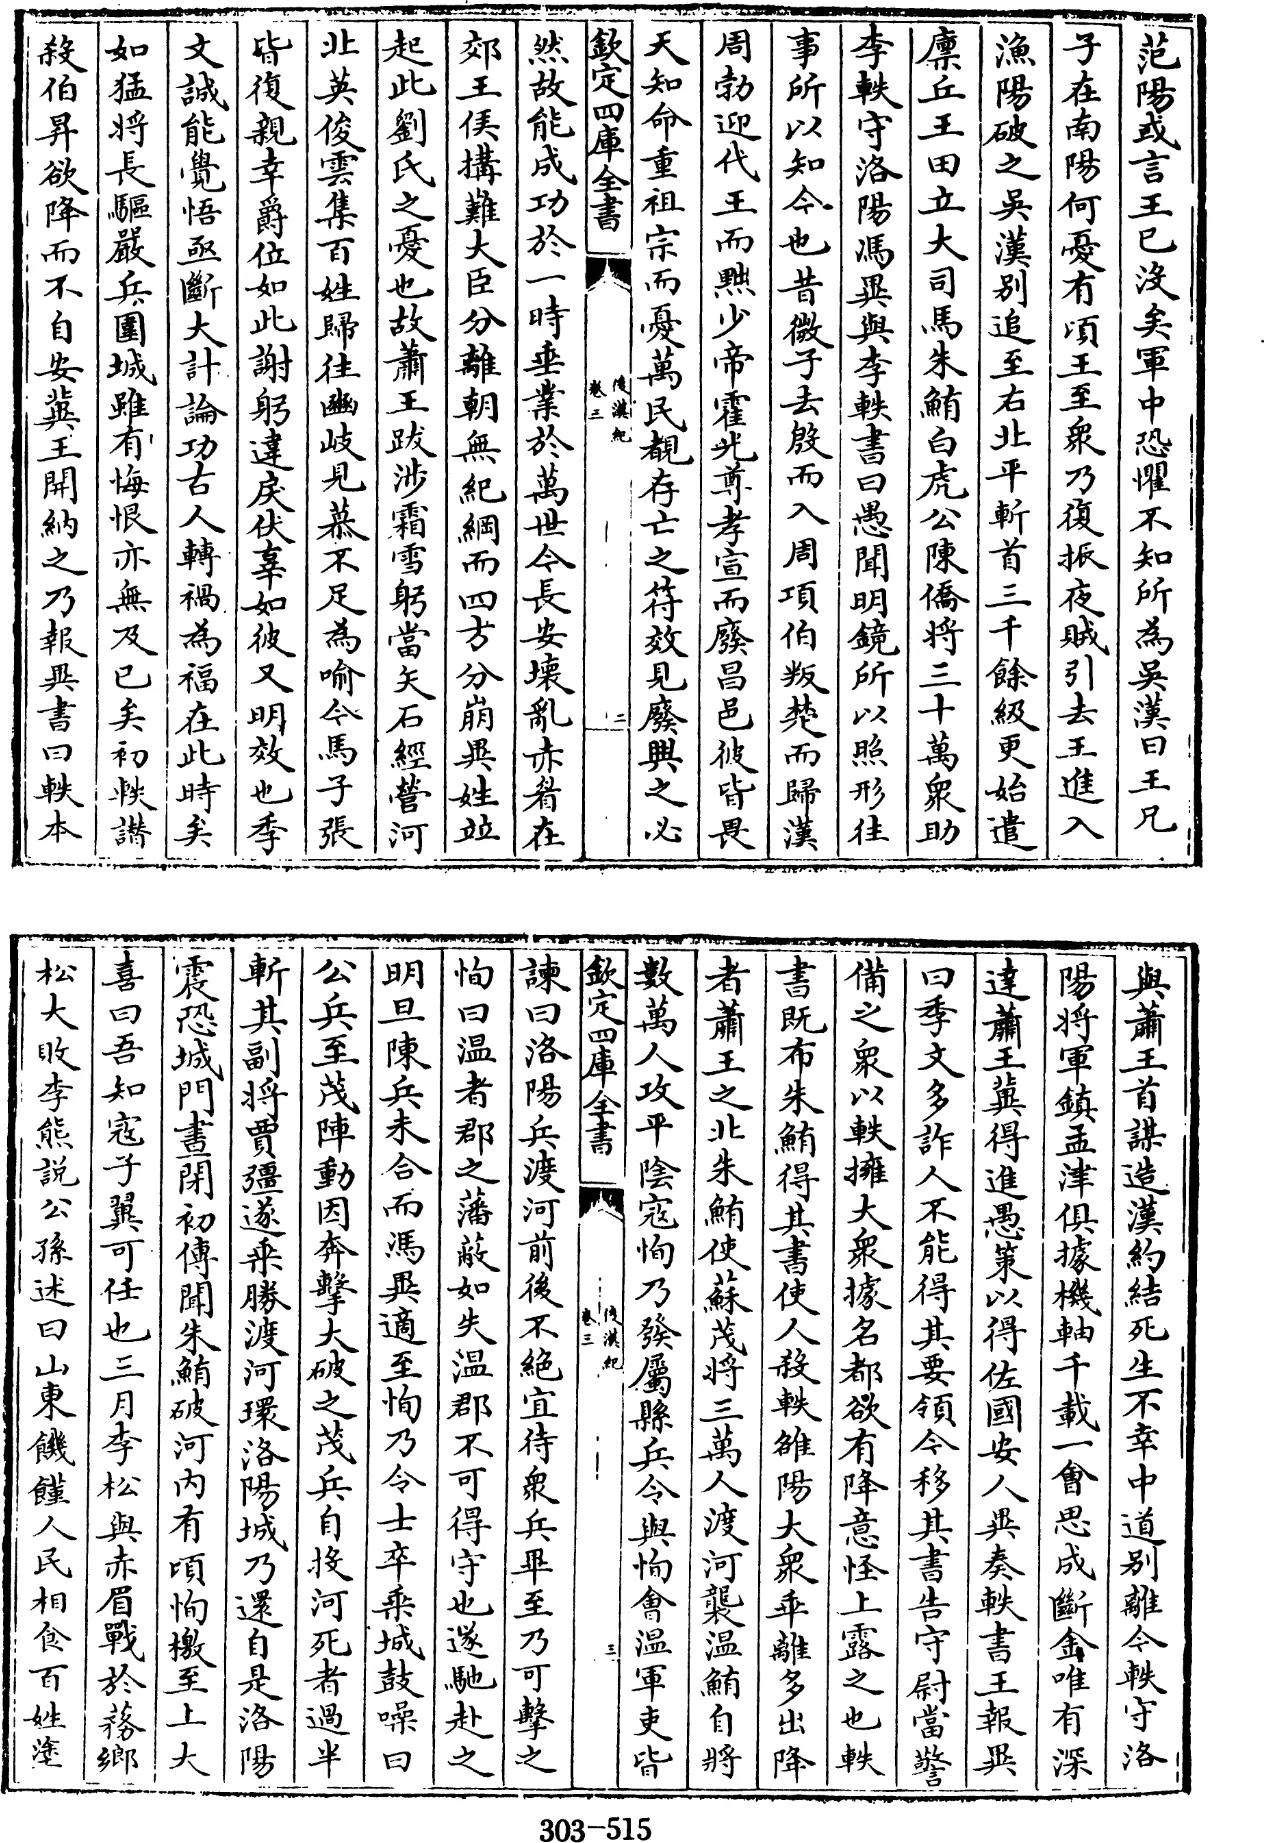 范陽或言王已沒矣軍中恐懼不知所為吳漢曰王兄
子在南陽何憂有頃王至衆乃復振夜賊引去王進入
漁陽破之吳漢別追至右北平斬首三千餘級更始遣
廩丘王田立大司馬朱鮪白虎公陳僑将三十萬衆助
李軼守洛陽馮異與李軼書曰愚聞明鏡所以照形往
事所以知今也昔微子去殷而入周項伯叛楚而歸漢
周勃迎代王而黜少帝霍光尊孝宣而廢昌邑彼皆畏
天知命重祖宗而憂萬民覩存亡之符效見廢興之必
欽定四庫全書
後漢紀
卷三
二
然故能成功於一時垂業於萬世今長安壊亂赤眉在
郊王侯搆難大臣分離朝無紀綱而四方分崩異姓並
起此劉氏之憂也故蕭王跋涉霜雪躬當矢石經營河
北英俊雲集百姓歸往豳岐見慕不足為喻今馬子張
皆復親幸爵位如此謝躬違戾伏辜如彼又明效也季
文誠能覺悟亟斷大計論功古人轉禍為福在此時矣
如猛将長驅嚴兵圍城雖有悔恨亦無及已矣初軼譖
殺伯昇欲降而不自安冀王開納之乃報異書曰軼本
與蕭王首謀造漢約結死生不幸中道别離今軼守洛
陽将軍鎮孟津俱據機軸千載一會思成斷金唯有深
達蕭王冀得進愚策以得佐國安人異奏軼書王報異
曰季文多詐人不能得其要領今移其書告守尉當警
備之衆以軼擁大衆據名都欲有降意怪上露之也軼
書既布朱鮪得其書使人殺軼雒陽大衆乖離多出降
者蕭王之北朱鮪使蘇茂将三萬人渡河襲温鮪自將
數萬人攻平陰寇恂乃發屬縣兵令與恂會温軍吏皆
欽定四庫全書
後漢紀
卷三
三
諫曰洛陽兵渡河前後不絶宜待衆兵畢至乃可擊之
恂曰温者郡之藩蔽如失温郡不可得守也遂馳赴之
明旦陳兵未合而馮異適至恂乃令士卒乘城鼓噪曰
公兵至茂陣動因奔擊大破之茂兵自投河死者過半
斬其副将賈彊遂乘勝渡河環洛陽城乃還自是洛陽
震恐城門晝閉初傅聞朱鮪破河内有頃恂檄至上大
喜曰吾知寇子翼可任也三月李松與赤眉戰於蓩鄉
松大敗李熊説公孫述曰山東饑饉人民相食百姓塗
303-515